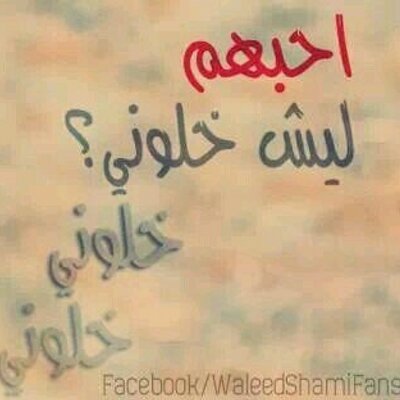 احبهم
ليش خلوني؟
خلوني
خلوني
Facebook/WaleedShamiFans